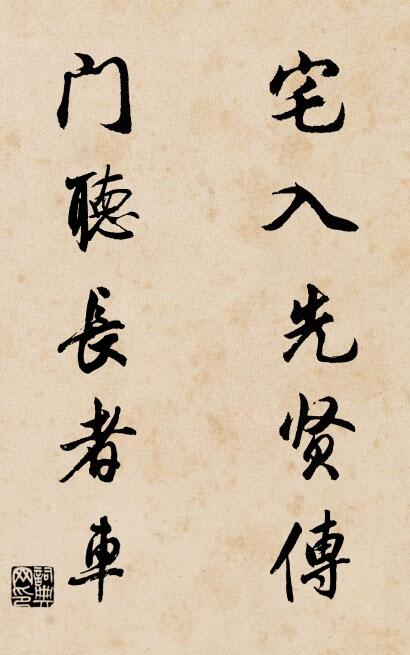 宅入先贤傳
门聽長者車
詞典网印